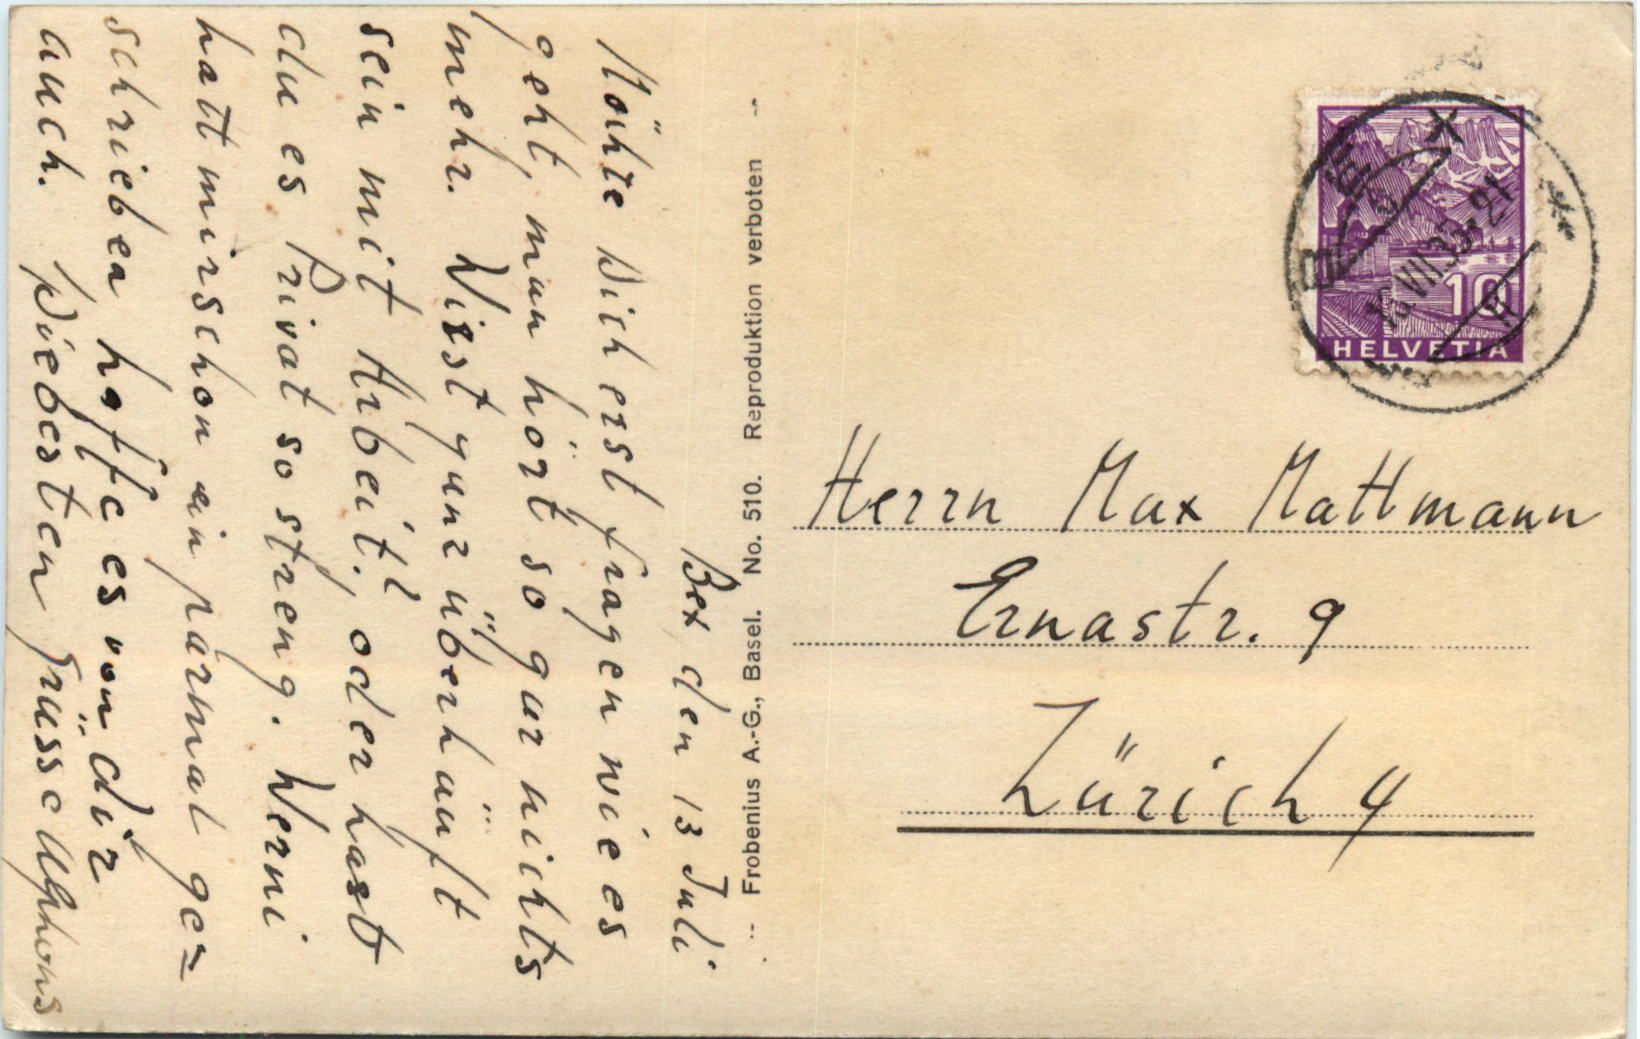 Bex den 13 Juli
Möchte Dich erst fragen wie es
geht, man hört so gar nichts
mehr. Wirst ganz überhäuft
sein mit Arbeit?, oder hast
du es Privat so streng. Werni
hatt mir schon ein parmal ge=
schrieben hoffe es von dir
auch. Die besten Grüsse Alphons
Frobenius A.-G., Basel. No. 510. Reproduktion verboten
BEX
VII.35-21
10
HELVETIA
Herrn Max Mattmann
Ernastr. 9
Zürich 4